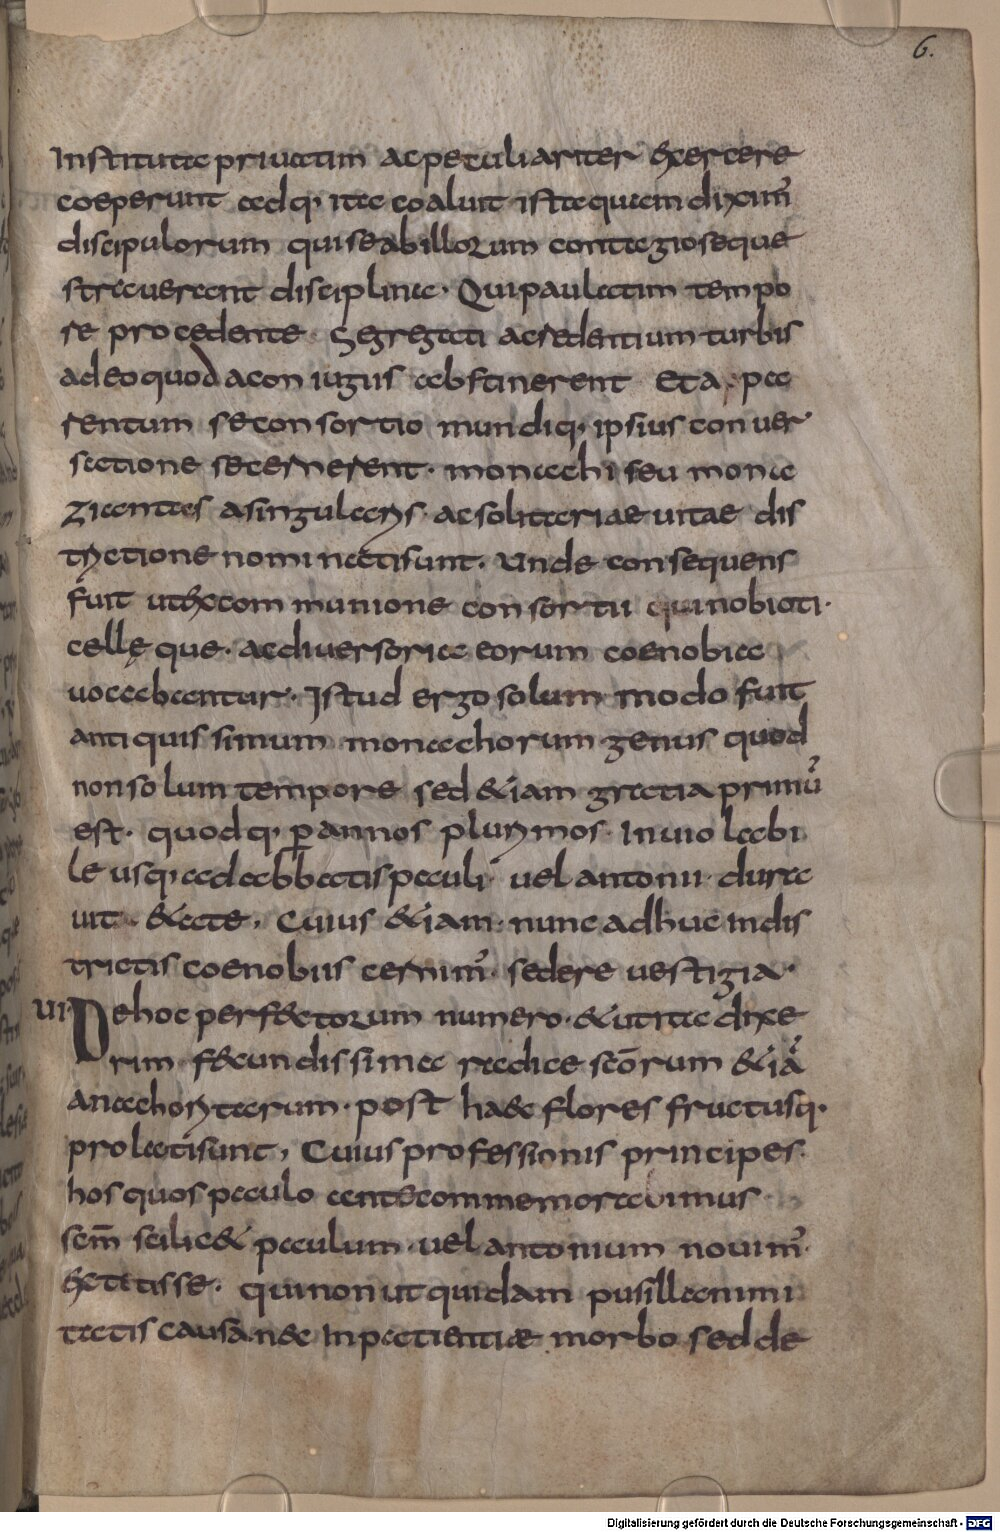 6.
Instituta priuatim ac peculiariter exercere
coeperunt adq· ita coaluit ista quam diximꝰ
discipulorum qui se ab illorum contagio seque
strauerant disciplina· Qui paulatim tempo
re procedente Segregati a credentium turbis
ad eo quod a coniugiis abstinerent Et a pa
rentum se consortio mundiq· ipsius conuer
satione secernerent· monachi seu mona
zicantes a singularys ac solitariae uitae dis
tryctione nominati sunt· Unde consequens
fuit ut ex communione consortii quinobioti·
cellę que· ac diuersoria eorum coenobia
uocabantur· Istud ergo solum modo fuit
antiquissimum monachorum genus quod
non solum tempore sed &iam gratia primū
est· quodq· ꝑ annos plurymos· Inuiolabi
le usq· ad abbatis pauli uel antonii dura
uit &ate, Cuius &iam nunc adhuc in dis
trictis coenobiis cernimꝰ sedere uestigia·
VI· De hoc perf&torum numero· &ut ita dixe
rim f&cundissima radice scōrum &iā
anachorytarum· post haec flores fructusq·
prolati sunt, Cuius professionis principes·
hos quos paulo ante commemorauimus
sem̄ scilic& paulum· uel antonium nouimꝰ·
extitisse· qui non ut quidam pusillanimi
tatis causa nec inpatientiae morbo sed de
Digitalisierung gefördert durch die Deutsche Forschungsgemeinschaft - DFG